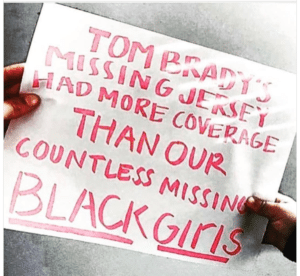 TOM BRADY'S
MISSING JERSEY
HAD MORE COVERAGE
THAN OUR
COUNTLESS MISSING
BLACK GIrlS